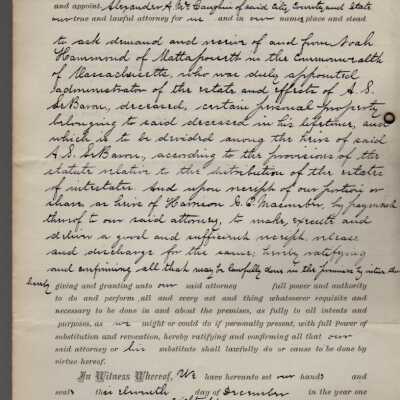 and appoint Alexander A. McCaughin of said City, County and State
our true and lawful attorney for us and in our names place and stead
to ask demand and receive of and from Noah
Hammond of Mattapoisett in the Commonwealth
of Massachusetts, who was duly appointed
administrator of the estate and effects of A. S.
LeBaron, deceased, certain personal property
belonging to said deceased in his lifetime, and
which is to be divided among the heirs of said
A. S. LeBaron, according to the provisions of the
statute relative to the distribution of the estates
of intestates. And upon receipt of our portion or
share, as heirs of Harrison G. O. Macomber, by payment
thereof to our said attorney, to make, execute and
deliver a good and sufficient receipt, release
and discharge for the same; hereby ratifying
and confirming all that may be lawfully done in the premises by virtue
hereby giving and granting unto our said attorney full power and authority
to do and perform all and every act and thing whatsoever requisite and
necessary to be done in and about the premises, as fully to all intents and
purposes, as we might or could do if personally present, with full Power of
substitution and revocation, hereby ratifying and confirming all that our
said attorney or his substitute shall lawfully do or cause to be done by
virtue hereof.
In Witness Whereof, We have hereunto set our hands and
seals this eleventh day of December in the year one